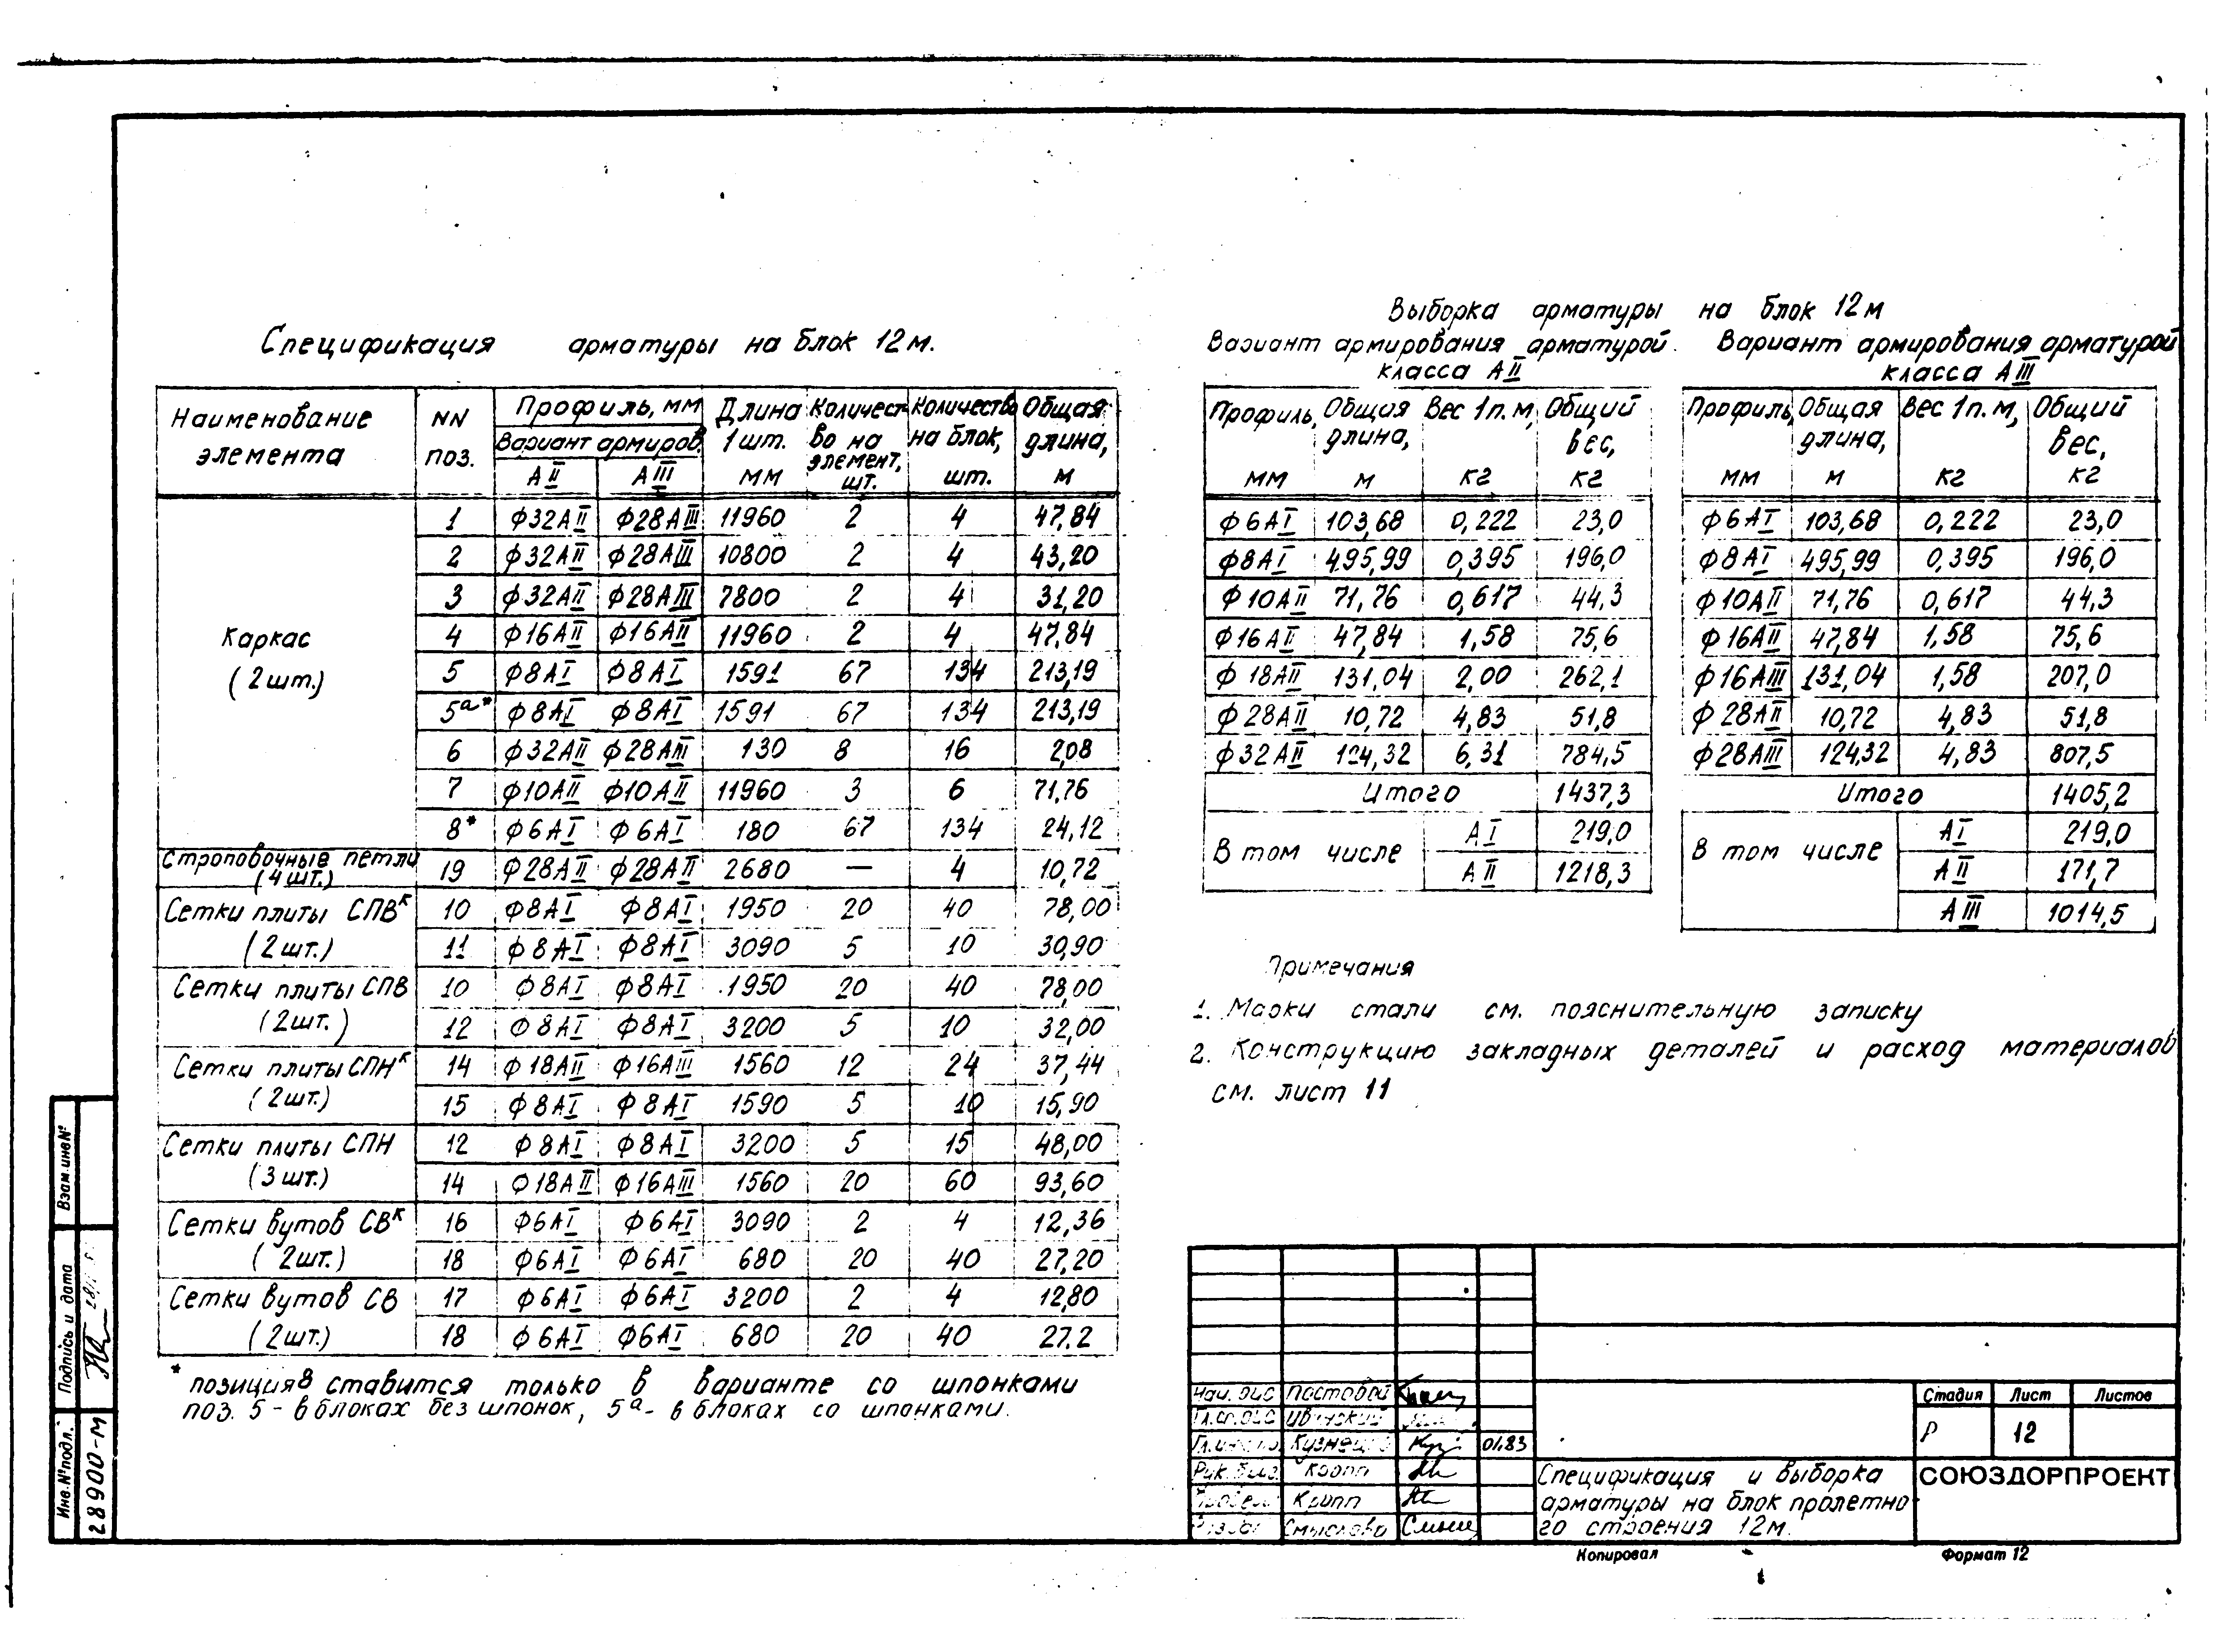 Спецификация арматуры на блок 12м.
Наименование элемента | NN поз. | Профиль, мм Вариант армиров. АII | АIII | Длина 1шт. мм | Количество на элемент, шт. | Количество на блок, шт. | Общая длина, м
Каркас (2шт.)
1 ф32АII ф28АIII 11960 2 4 47,84
2 ф32АII ф28АIII 10800 2 4 43,20
3 ф32АII ф28АIII 7800 2 4 31,20
4 ф16АII ф16АII 11960 2 4 47,84
5 ф8АI ф8АI 1591 67 134 213,19
5а* ф8АI ф8АI 1591 67 134 213,19
6 ф32АII ф28АIII 130 8 16 2,08
7 ф10АII ф10АII 11960 3 6 71,76
8* ф6АI ф6АI 180 67 134 24,12
Строповочные петли (4шт.)
19 ф28АII ф28АII 2680 — 4 10,72
Сетки плиты СПВк (2шт.)
10 ф8АI ф8АI 1950 20 40 78,00
11 ф8АI ф8АI 3090 5 10 30,90
Сетки плиты СПВ (2шт.)
10 ф8АI ф8АI 1950 20 40 78,00
12 ф8АI ф8АI 3200 5 10 32,00
Сетки плиты СПНк (2шт.)
14 ф18АII ф16АIII 1560 12 24 37,44
15 ф8АI ф8АI 1590 5 10 15,90
Сетки плиты СПН (3шт.)
12 ф8АI ф8АI 3200 5 15 48,00
14 ф18АII ф16АIII 1560 20 60 93,60
Сетки вутов СВк (2шт.)
16 ф6АI ф6АI 3090 2 4 12,36
18 ф6АI ф6АI 680 20 40 27,20
Сетки вутов СВ (2шт.)
17 ф6АI ф6АI 3200 2 4 12,80
18 ф6АI ф6АI 680 20 40 27.2
* позиция 8 ставится только в варианте со шпонками
поз. 5 - в блоках без шпонок, 5а - в блоках со шпонками.
Выборка арматуры на блок 12м
Вариант армирования арматурой класса АII
Профиль, мм | Общая длина, м | Вес 1п.м, кг | Общий вес, кг
ф6АI 103,68 0,222 23,0
ф8АI 495,99 0,395 196,0
ф10АII 71,76 0,617 44,3
ф16АII 47,84 1,58 75,6
ф18АII 131,04 2,00 262,1
ф28АII 10,72 4,83 51,8
ф32АII 124,32 6,31 784,5
Итого 1437,3
В том числе
АI 219,0
АII 1218,3
Вариант армирования арматурой класса АIII
Профиль, мм | Общая длина, м | Вес 1п.м, кг | Общий вес, кг
ф6АI 103,68 0,222 23,0
ф8АI 495,99 0,395 196,0
ф10АII 71,76 0,617 44,3
ф16АII 47,84 1,58 75,6
ф16АIII 131,04 1,58 207,0
ф28АII 10,72 4,83 51,8
ф28АIII 124,32 4,83 807,5
Итого 1405,2
В том числе
АI 219,0
АII 171,7
АIII 1014,5
Примечания
1. Марки стали см. пояснительную записку
2. Конструкцию закладных деталей и расход материалов
см. лист 11
Нач. ОИС Постовой
Кузнецов 01.83
Кропп
Кропп
Смыслова
Стадия Лист Листов
Р 12
Спецификация и выборка
арматуры на блок пролетно-
го строения 12м.
СОЮЗДОРПРОЕКТ
Копировал Формат 12
Взам.инв№
Подпись и дата
Инв.№подл.
28900-М